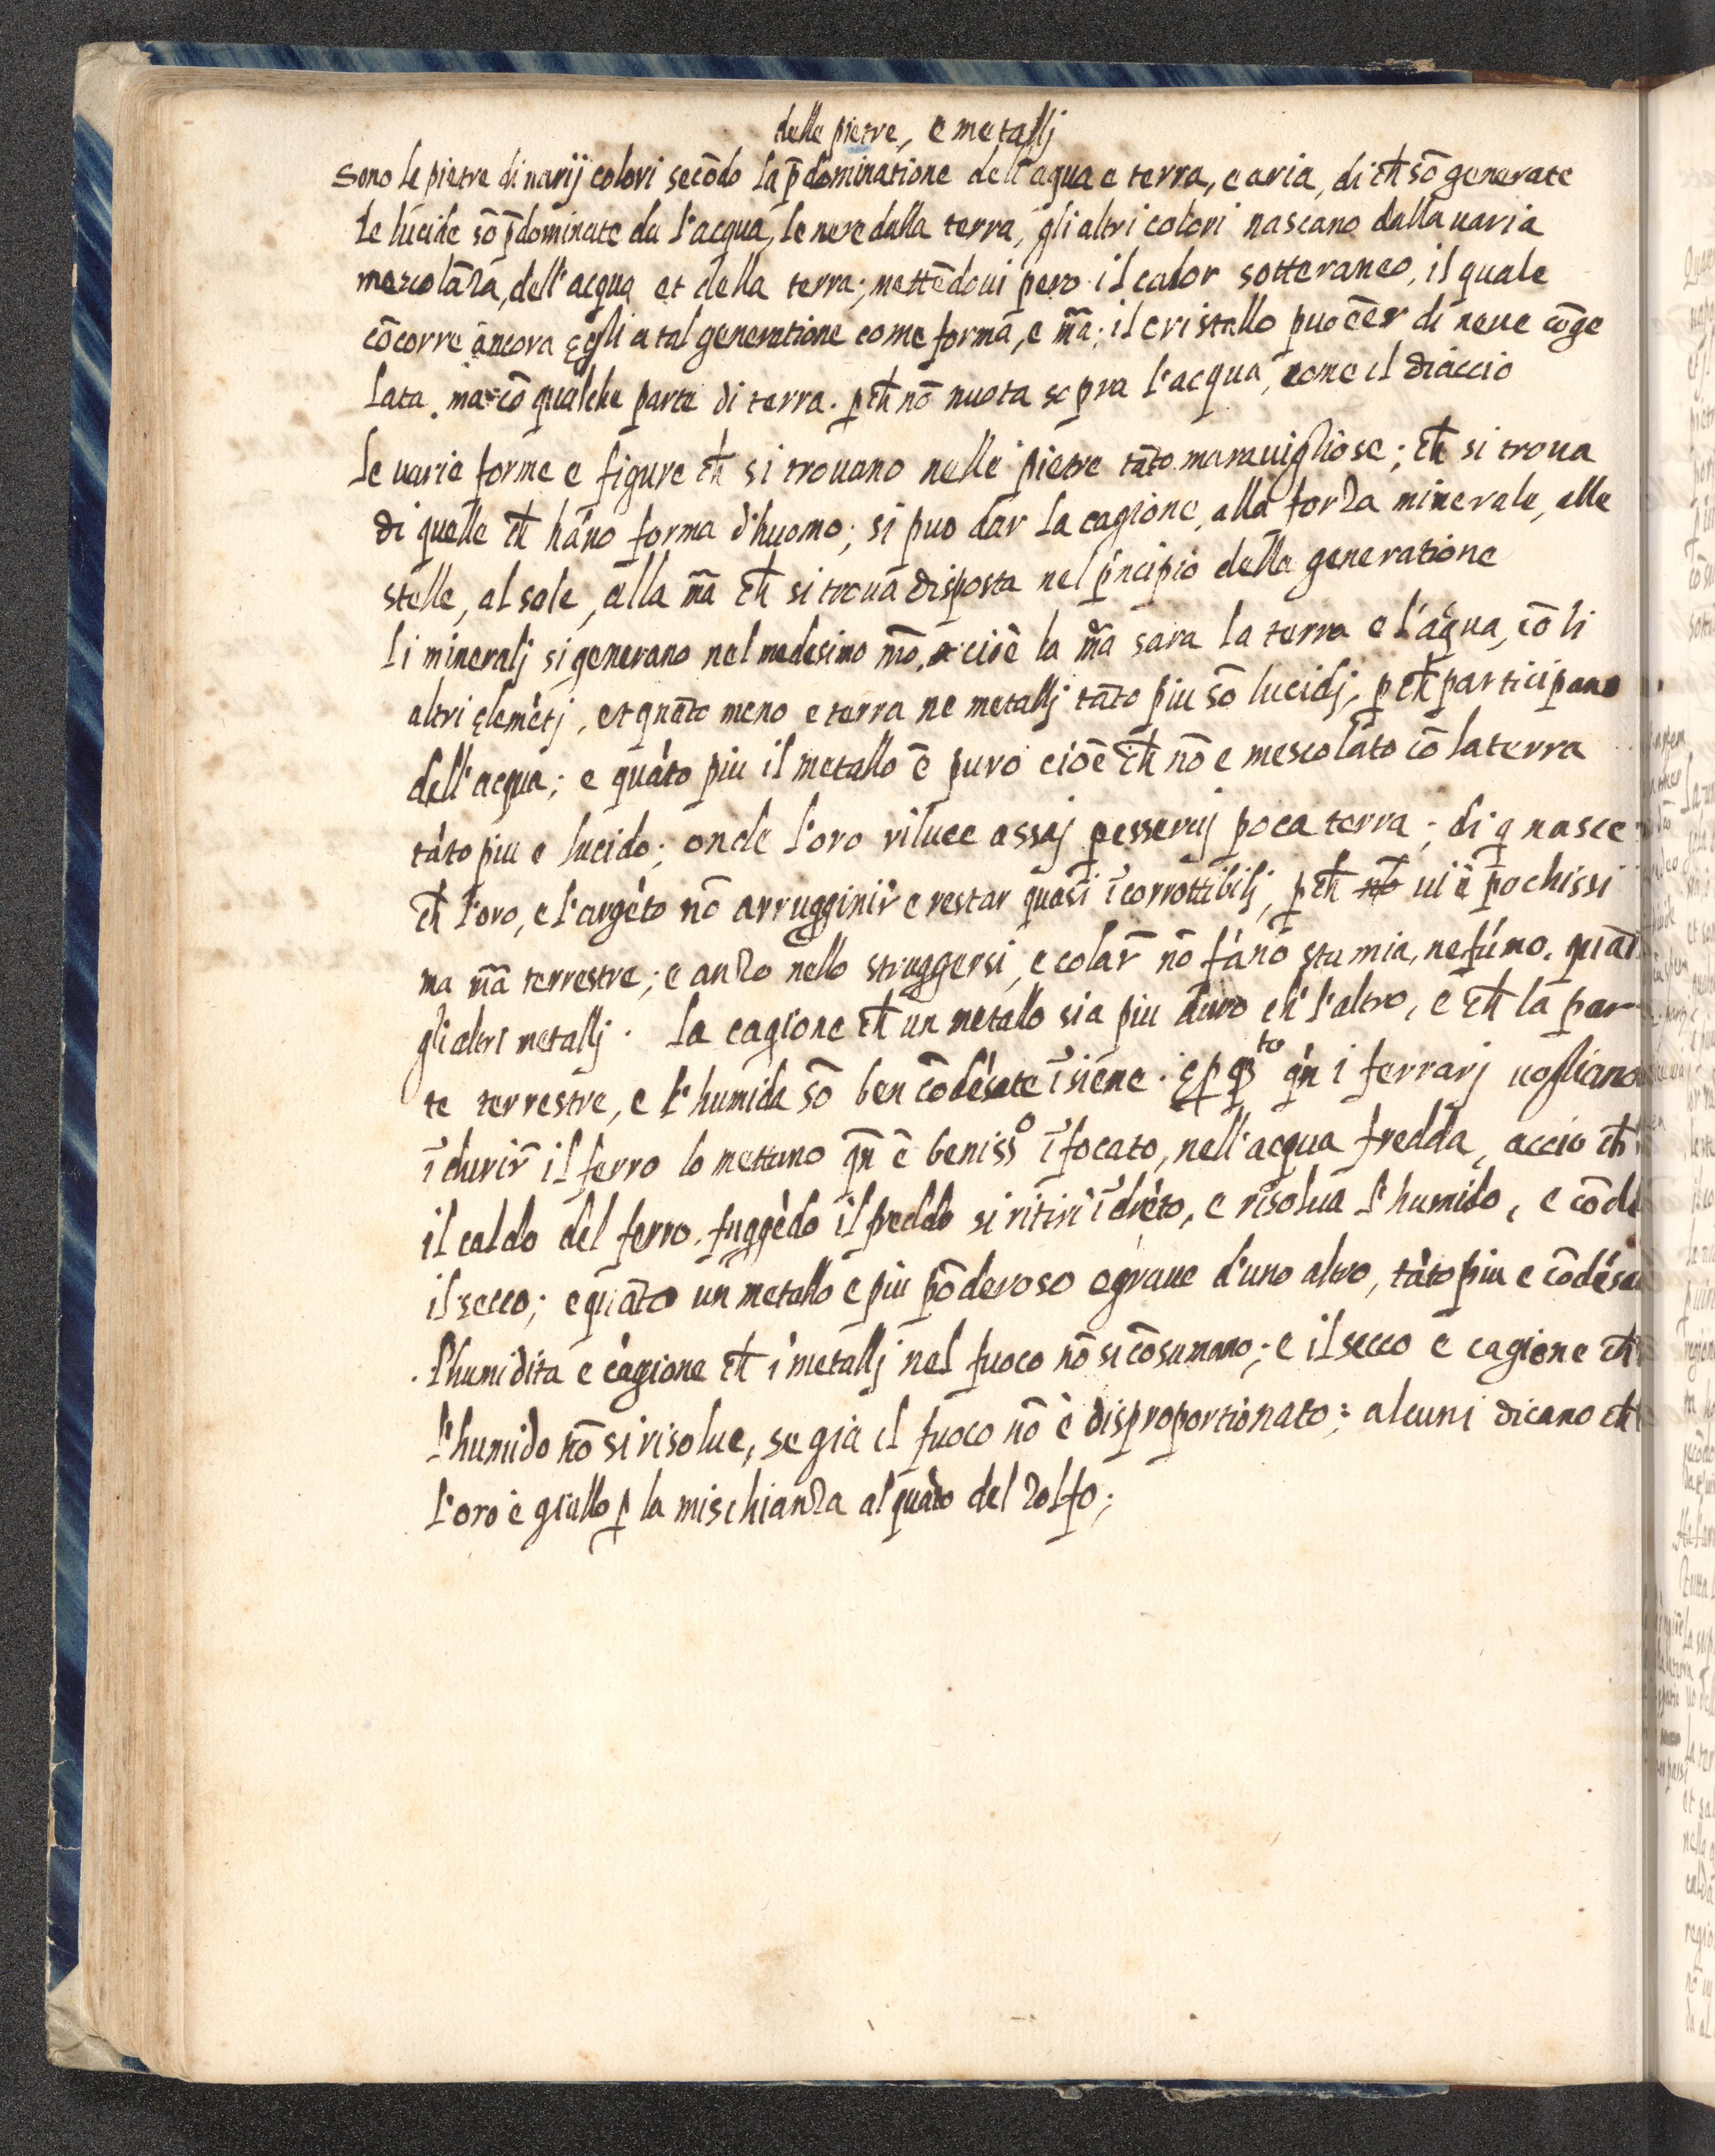 delle pietre, e metallj
Sono le pietre di uarij colori secõdo la p̃dominatione dell'aqua e terra, e aria, di ch̃ sõ generate
le lucide sõ p̃dominate da l'acqua, le nere dalla terra, gli altri colori nascano dalla uaria
mescolãza, dell'acqua et della terra; mettẽdoui pero il calor sotteraneo, il quale
cõcorre ancora egli a tal generatione come forma, e m̃a; il cristallo puo ẽer di neue cõge
lata. ma cõ qualche parte di terra. p ch̃ nõ nuota sopra l'acqua, come il diaccio
Le uarie forme e figure ch̃ si trouano nelle pietre tãto marauigliose; ch̃ si troua
di quelle ch̃ hãno forma d'huomo; si puo dar la cagione, alla forza minerale, alle
stelle, al sole, alla m̃a ch̃ si troua disposta nel p̃ncipio della generatione
li mineralj si generano nel medesimo m̃o, cioè la m̃a sara la terra e l'aqua, cõ li
altri elemẽtj, et quãto meno e terra ne metallj tãto piu sõ lucidj, p ch̃ participano
dell'acqua; e quãto piu il metallo è puro cioè ch̃ nõ e mescolato cõ la terra
tãto piu e lucido; onde l'oro riluce assaj p esseruj poca terra; di q nasce
ch̃ l'oro, e l'argẽto nõ arrugginir̃ e restar quasi ĩcorrottibilj, p ch̃ ui è pochissi
ma m̃a terrestre; e anzo nello struggersi, e colar̃ nõ fãno stumia, ne fumo. quãt
gli altri metallj. La cagione ch̃ un metallo sia piu duro ch' l'altro, e ch̃ la par
te terrestre, e l'humida sõ ben cõdẽsate ĩsieme. E p q^to qñ i ferrarj uogliano
ĩdurir̃ il ferro lo mettano qñ è beniss^o ĩfocato, nell'acqua fredda, accio ch̃
il caldo del ferro fuggẽdo il freddo si ritiri ĩdrẽto, e risolua l'humido, e cõdẽ
il secco; e quãto un metallo e piu põderoso e graue d'uno altro, tãto piu e cõdẽsa
l'humidita e cagione ch̃ i metallj nel fuoco nõ si cõsumano; e il secco e cagione ch̃
l'humido nõ si risolue, se gia il fuoco nõ è disproportionato; alcuni dicano ch̃
l'oro è giallo p la mischianza alquãto del zolfo;